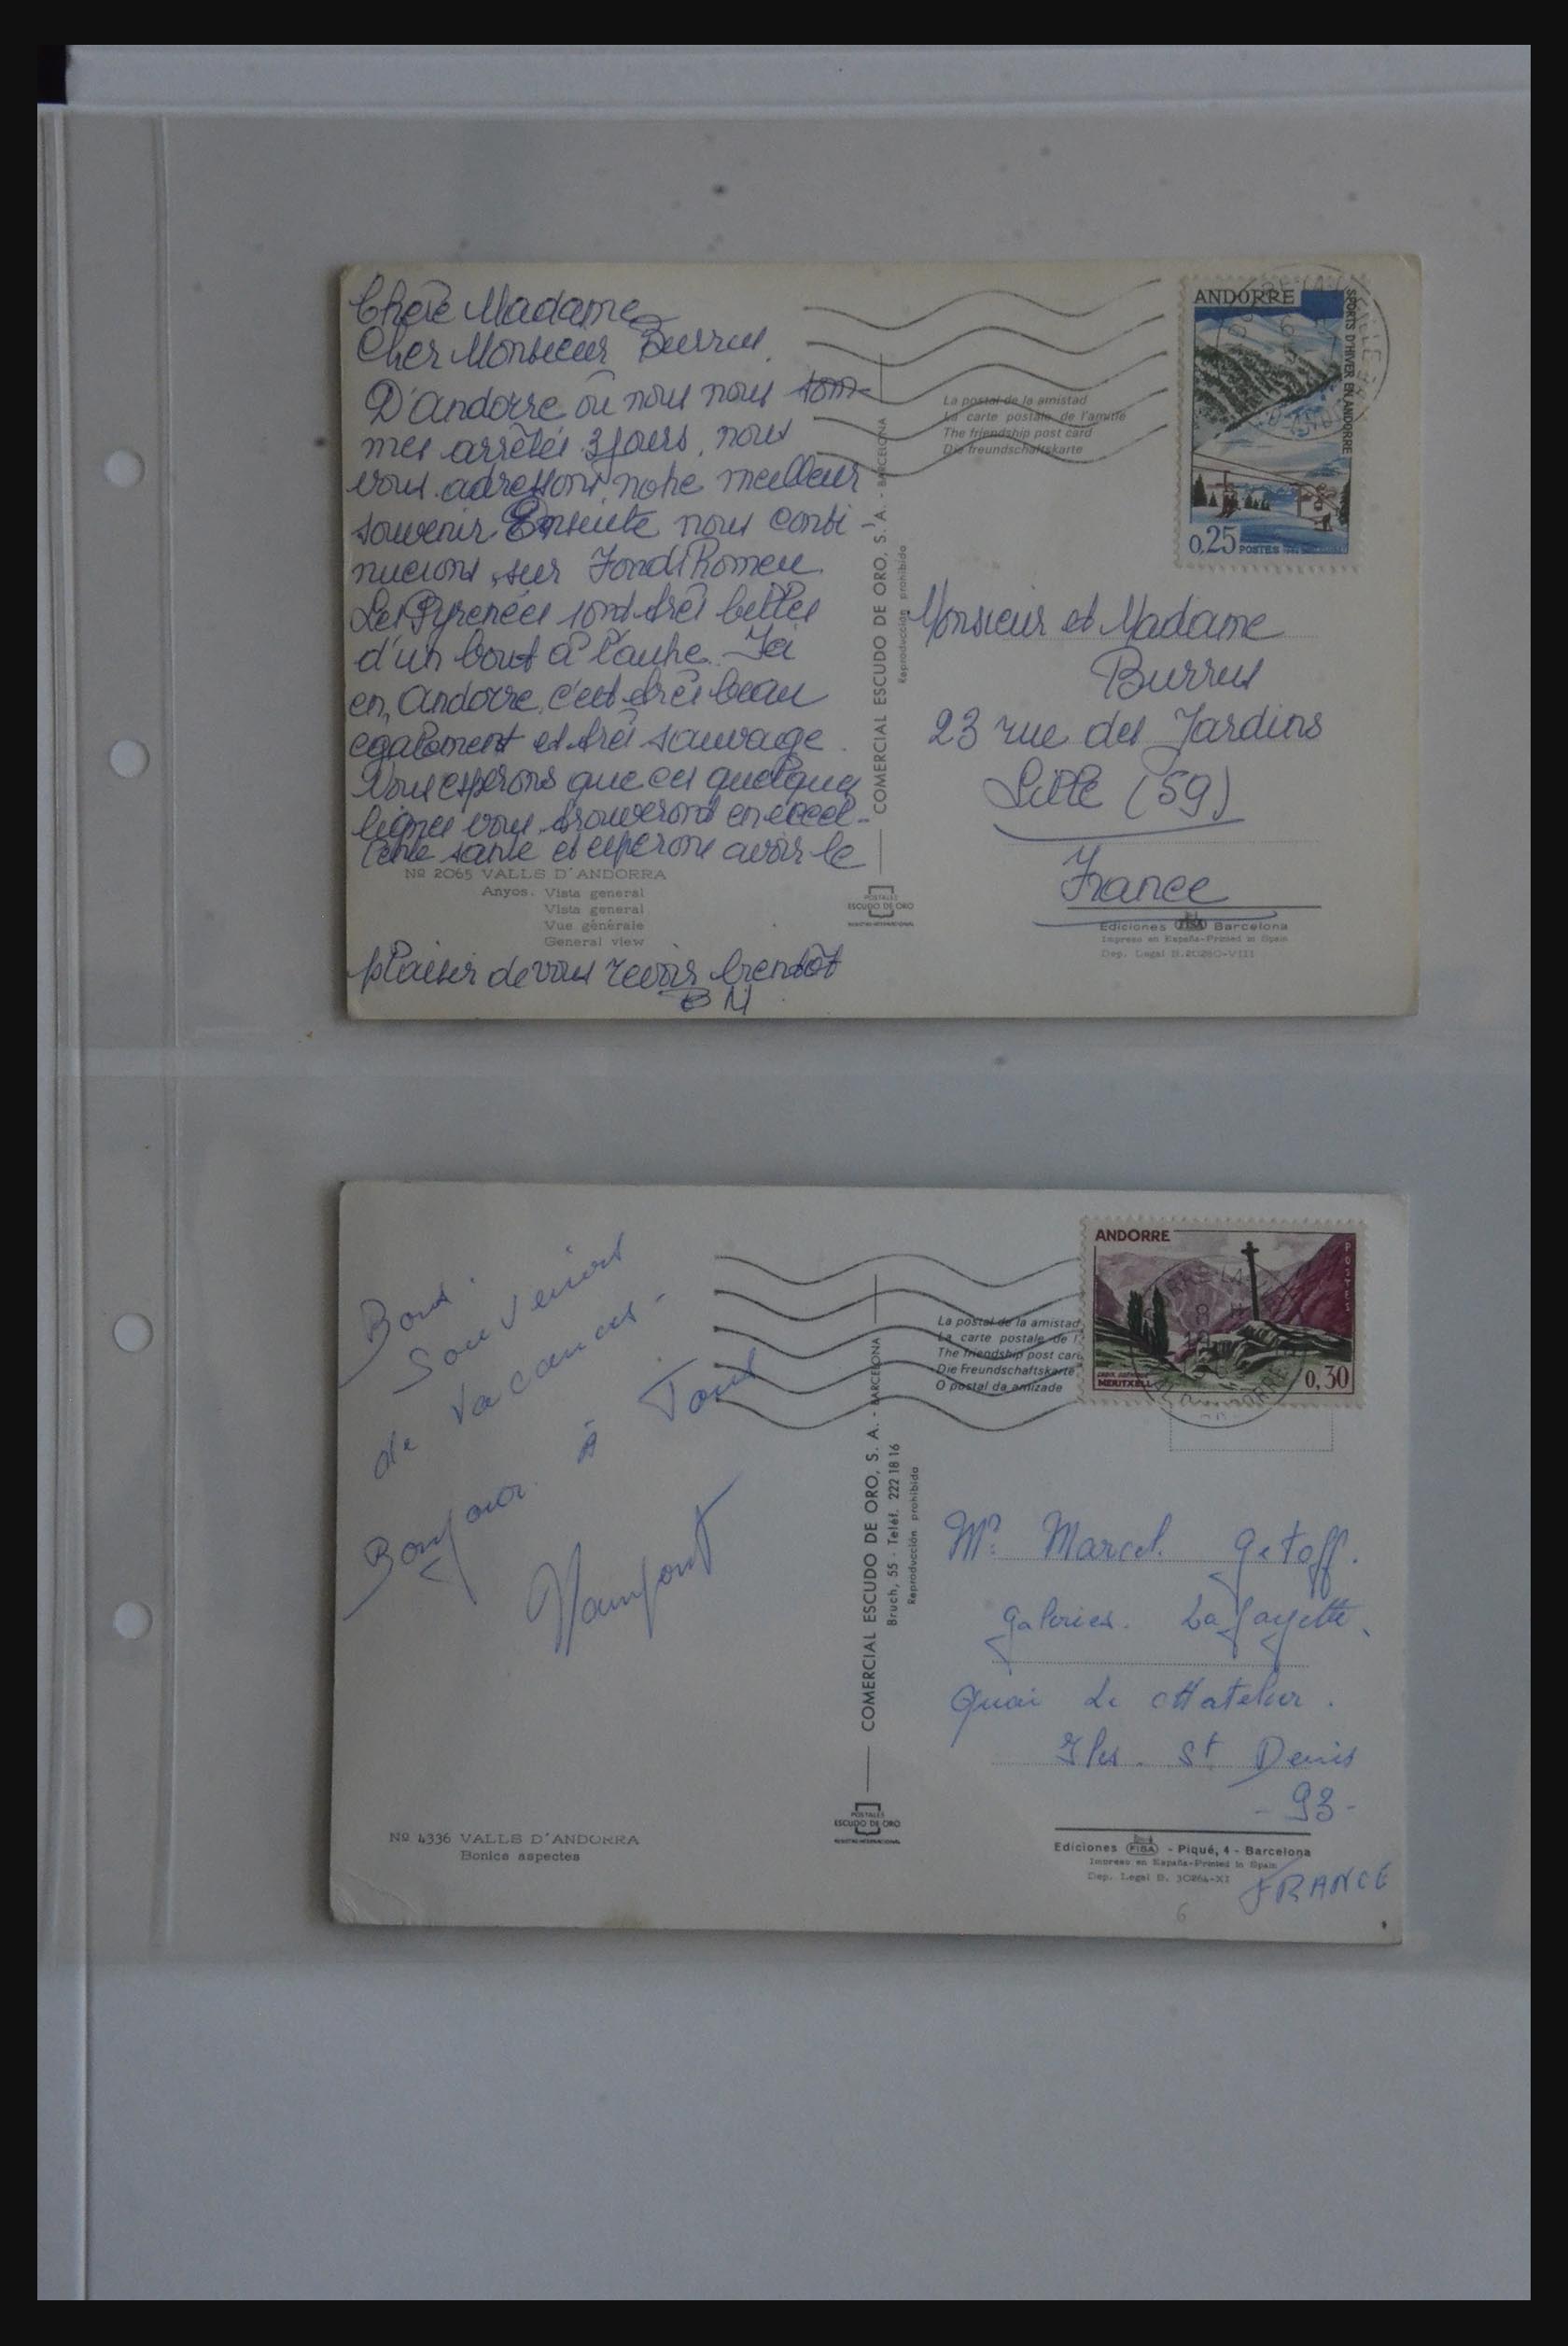 Chère Madame
Cher Monsieur Burrus.
D'Andorre où nous nous som-
mes arrêtés 3 jours, nous
vous adressons notre meilleur
souvenir Ensuite nous conti-
nuerons sur Font Romeu.
Les Pyrenées sont très belles
d'un bout à l'autre. Ici
en Andorre c'est très beau
egalement et très sauvage.
Nous esperons que ces quelques
lignes vous trouveront en excel-
lente santé et esperons avoir le
Nº 2065 VALLS D'ANDORRA
Anyos. Vista general
Vista general
Vue générale
General view
plaisir de vous revoir bientôt
BM
COMERCIAL ESCUDO DE ORO, S. A. - BARCELONA
Reproducción prohibida
POSTALES
ESCUDO DE ORO
La postal de la amistad
La carte postale de l'amitié
The friendship post card
Die freundschaftskarte
ANDORRE
SPORTS D'HIVER EN ANDORRE
0,25 POSTES
Monsieur et Madame
Burrus
23 rue des Jardins
Lille (59)
France
Ediciones FISA Barcelona
Impreso en España-Printed in Spain
Dep. Legal B.20260-VIII
Bons
Souvenirs
de Vacances -
Bonjour à Tous
Nº 4336 VALLS D'ANDORRA
Bonics aspectes
COMERCIAL ESCUDO DE ORO, S. A. - BARCELONA
Bruch, 55 - Teléf. 222 18 16
Reproducción prohibida
POSTALES
ESCUDO DE ORO
La postal de la amistad
La carte postale de l'
The friendship post card
Die Freundschaftskarte
O postal da amizade
ANDORRE
POSTES
MERITXELL
0,30
Mr Marcel Getoff.
Galeries. Lafayette.
Quai Le Chatelier.
Iles. St Denis
- 93 -
Ediciones FISA - Piqué, 4 - Barcelona
Impreso en España-Printed in Spain
Dep. Legal B. 30264-XI
FRANCE
6